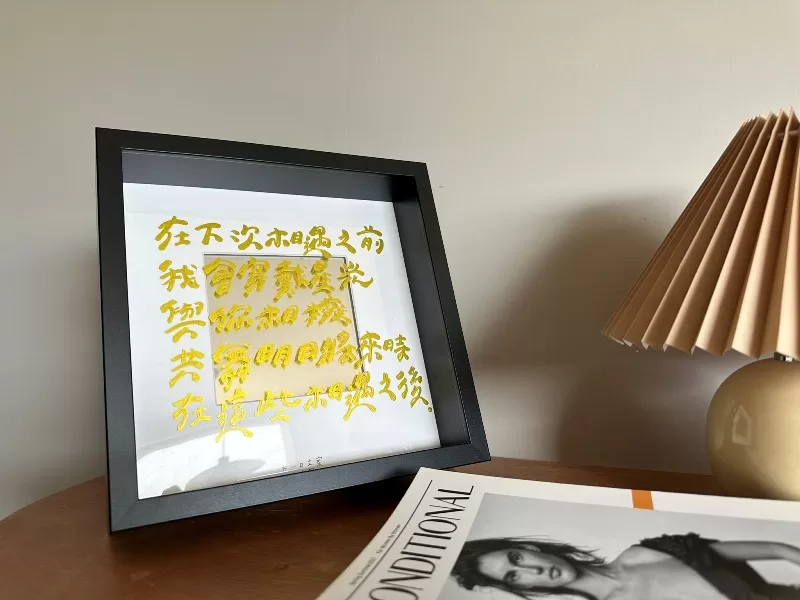 在下次相遇之前
我會穿戴星光
與你相擁
共與明日將來時
在這些相遇之後。
ONDITIONAL